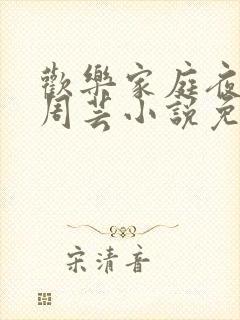 歡樂家庭夜
周芸小說免
宋清音